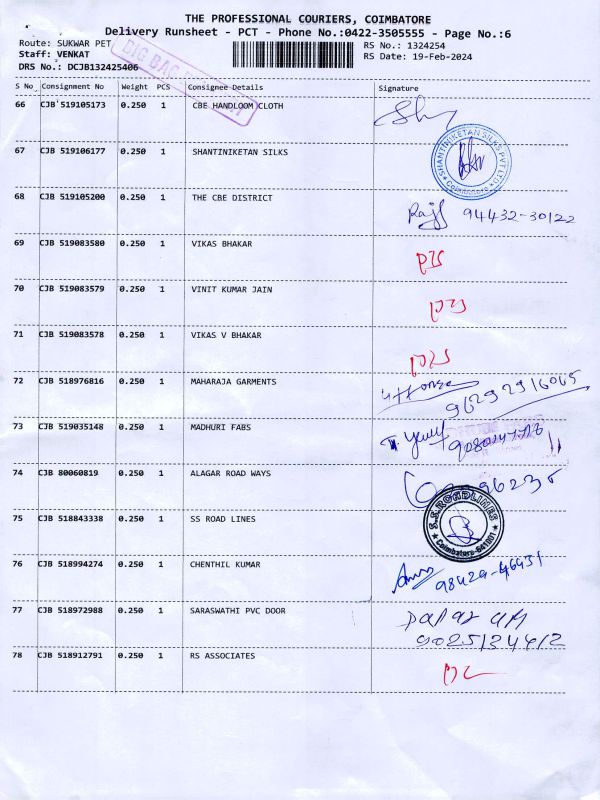 THE PROFESSIONAL COURIERS, COIMBATORE
Delivery Runsheet - PCT - Phone No.:0422-3505555 - Page No.:6
Route: SUKWAR PET RS No.: 1324254
Staff: VENKAT RS Date: 19-Feb-2024
DRS No.: DCJB132425406
S No Consignment No Weight PCS Consignee Details Signature
66 CJB 519105173 0.250 1 CBE HANDLOOM CLOTH
67 CJB 519106177 0.250 1 SHANTINIKETAN SILKS
SHANTINIKETAN SILKS PVT LTD
Coimbatore
68 CJB 519105200 0.250 1 THE CBE DISTRICT
94432-30122
69 CJB 519083580 0.250 1 VIKAS BHAKAR
70 CJB 519083579 0.250 1 VINIT KUMAR JAIN
71 CJB 519083578 0.250 1 VIKAS V BHAKAR
72 CJB 518976816 0.250 1 MAHARAJA GARMENTS
73 CJB 519035148 0.250 1 MADHURI FABS
74 CJB 80060819 0.250 1 ALAGAR ROAD WAYS
75 CJB 518843338 0.250 1 SS ROAD LINES
S.S.ROADLINES
Coimbatore-641001
76 CJB 518994274 0.250 1 CHENTHIL KUMAR
98429-46431
77 CJB 518972988 0.250 1 SARASWATHI PVC DOOR
9025134412
78 CJB 518912791 0.250 1 RS ASSOCIATES